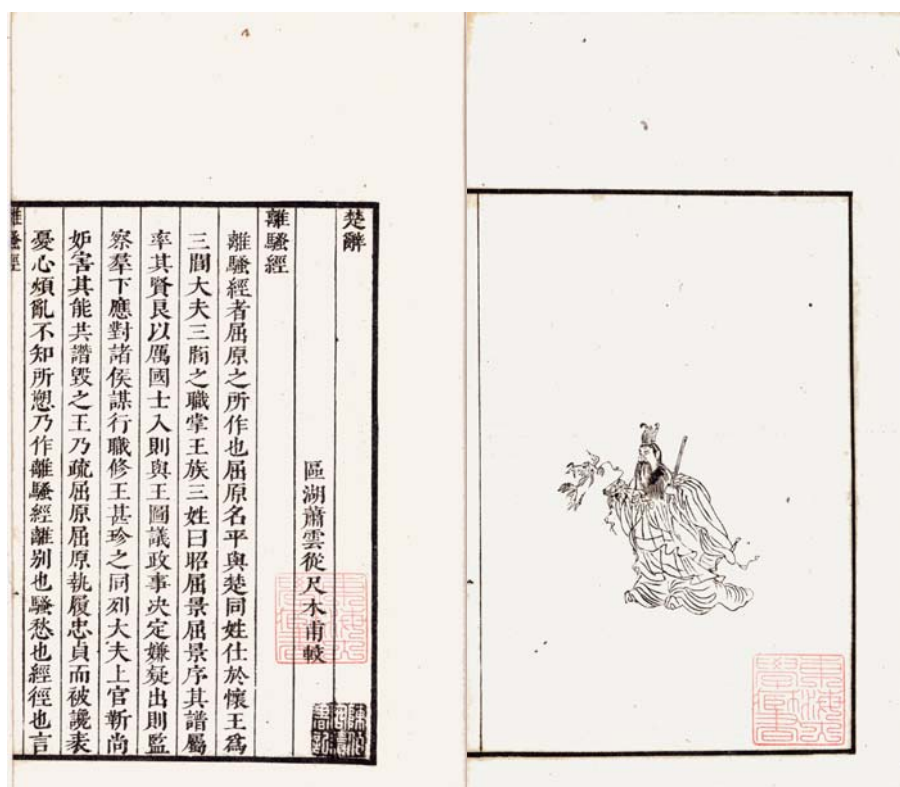 楚辭
區湖蕭雲從尺木甫較
離騷經
離騷經者屈原之所作也屈原名平與楚同姓仕於懷王爲
三閭大夫三閭之職掌王族三姓曰昭屈景屈景序其譜屬
率其賢良以厲國士入則與王圖議政事決定嫌疑出則監
察羣下應對諸侯謀行職修王甚珍之同列大夫上官靳尚
妒害其能共譖毀之王乃疏屈原屈原執履忠貞而被讒衺
憂心煩亂不知所愬乃作離騷經離別也騷愁也經徑也言
離騷經